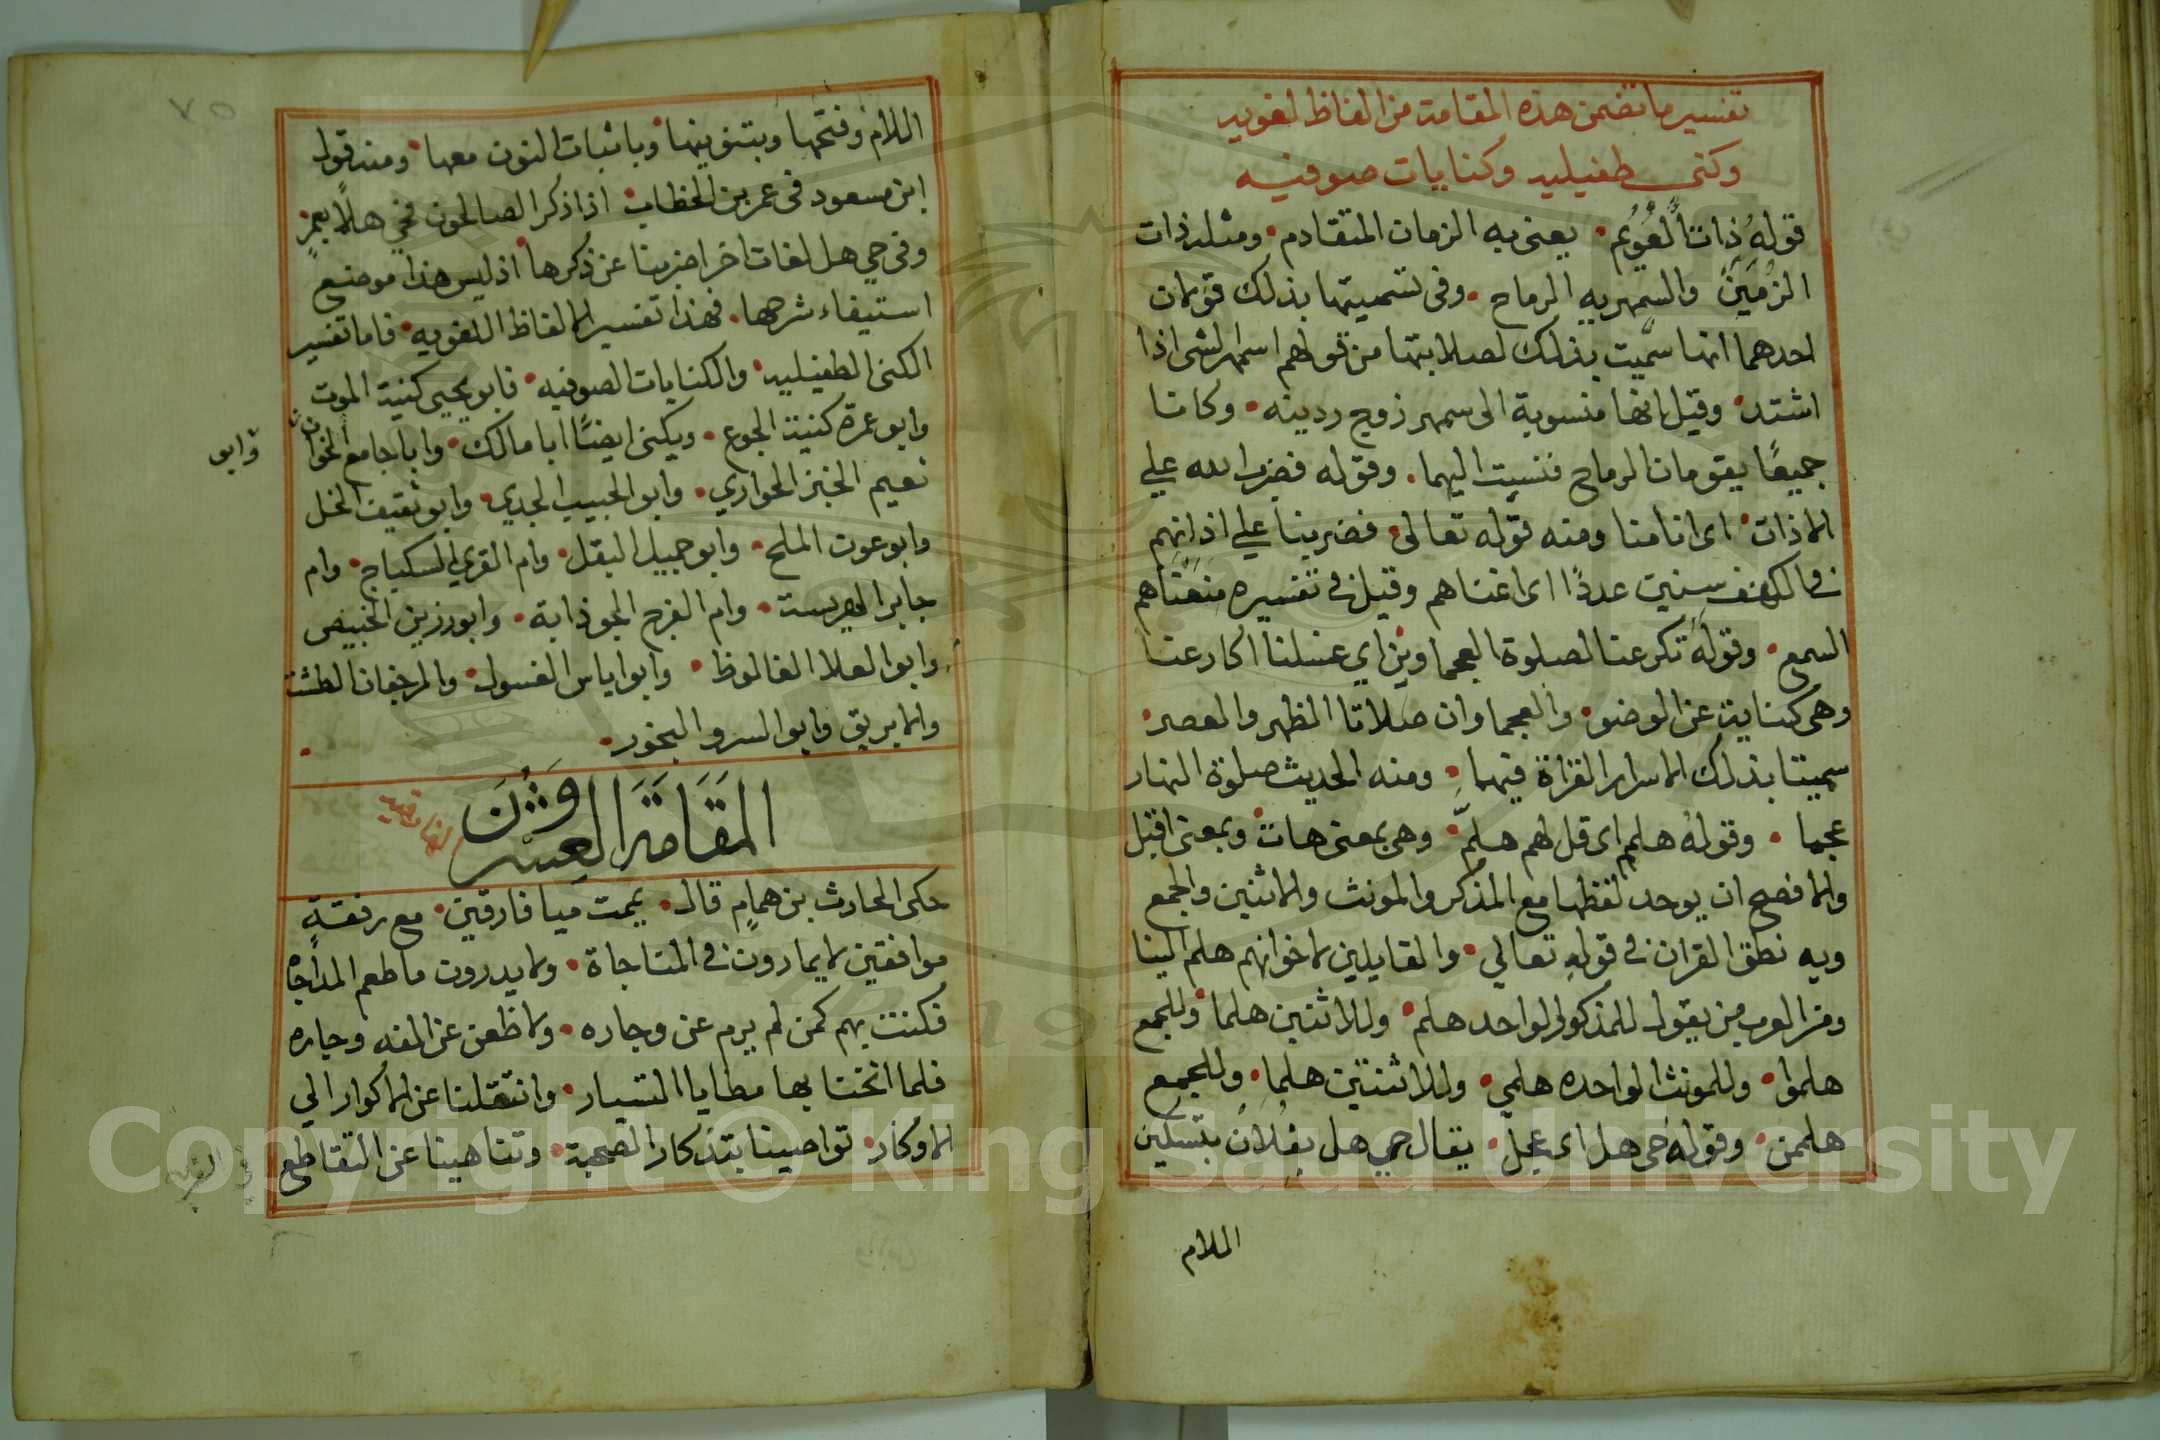 تفسير ما تضمن هذه المقامة من الفاظ لغويه
وكنى طفيليه وكنايات صوفيه
قوله ذات العويم يعنى به الزمان المتقادم ومثله ذات
الزمين والسمهريه الرماح وفى تسميتها بذلك قولان
احدهما انها سميت بذلك لصلابتها من قولهم اسمهر الشى اذا
اشتد وقيل انها منسوبة الى سمهر زوج ردينه وكانا
جميعًا يقومان الرماح فنسبت اليهما وقوله فضرب الله علي
الاذان اى انامنا ومنه قوله تعالى فضربنا علي اذانهم
فى الكهف سنين عددًا اى اغناهم وقيل فى تفسيره منعناهم
السمع وقوله تكرعنا لصلوة العجماوين اي غسلنا اكارعنا
وهى كناية عن الوضو والعجماوان صلاتا الظهر والعصر
سميتا بذلك لاسرار القراة فيهما ومنه الحديث صلوة النهار
عجما وقوله هلم اى قل لهم هلمّ وهى بمعنى هات وبمعنى اقبل
والافصح ان يوحد لفظها مع المذكر والمونث والاثنين والجمع
وبه نطق القران فى قوله تعالي والقايلين لاخوانهم هلم الينا
ومن العرب من يقول للمذكر الواحد هلم وللاثنين هلما وللجمع
هلموا وللمونث الواحده هلمي وللاثنتين هلما وللجمع
هلممن وقوله حى هل اى عجل يقال حي هل بفلان بتسكين
اللام
اللام وفتحها وبتنوينها وباثبات النون معها ومنه قول
ابن مسعود فى عمر بن الخطاب اذا ذكر الصالحون فحي هلًا بعمر
وفى حي هل لغات اخر اضربنا عن ذكرها اذ ليس هذا موضع
استيفاء شرحها فهذا تفسير الالفاظ اللغويه فاما تفسير
الكنى الطفيليه والكنايات الصوفيه فابو يحيى كنية الموت
وابو عمرة كنية الجوع ويكنى ايضًا ابا مالك وابا جامع الخوان
وابو
نعيم الخبز الحواري وابو الحبيب الجدي وابو ثقيف الخل
وابو عون الملح وابو جميل البقل وام القري السكباج وام
جابر الهريسة وام الفرج الجوذابة وابو رزين الخبيص
وابو العلا الفالوظ وابو اياس الغسول والمرجفان الطشت
والابريق وابو السرو البخور
المقامة العشرون
الفارقيه
حكى الحارث بن همام قال يممت ميافارقين مع رفقةٍ
موافقين لا يمارون فى المناجاة ولا يدرون ما طعم المداجاه
فكنت بهم كمن لم يرم عن وجاره ولا ظعن عن الفه وجاره
فلما انخنا بها مطايا التسيار وانتقلنا عن الاكوار الي
الاوكار تواصينا بتذكار الصحبة وتناهينا عن التقاطع
Copyright © King Saud University